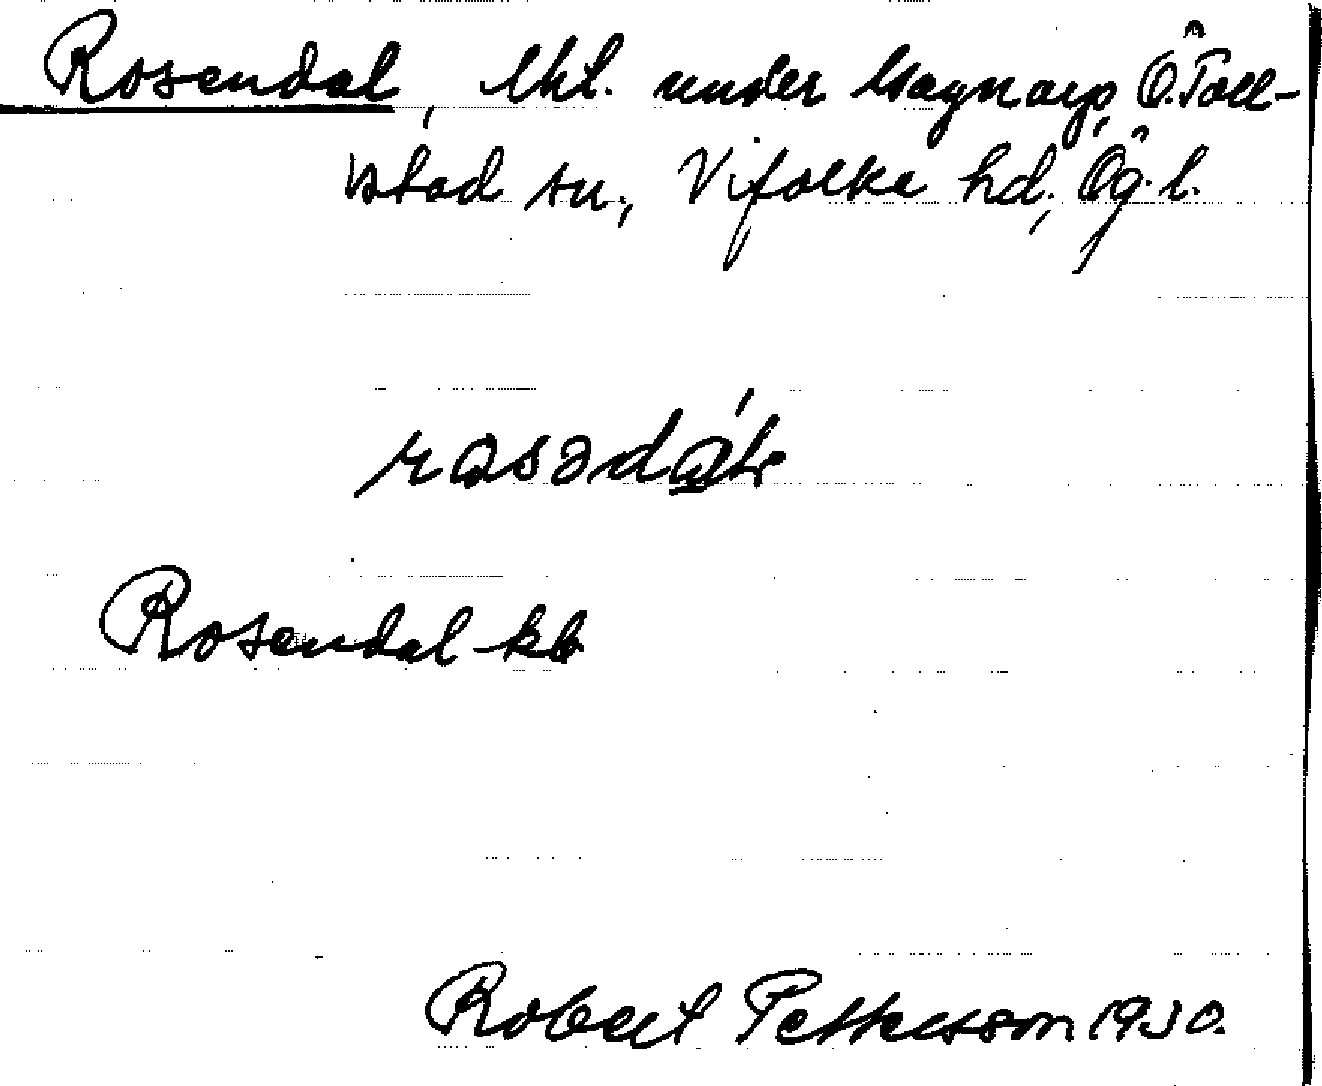 Rosendal, lht. under Magnarp, Ö. Toll-
stad sn., Vifolka hd, Ög. l.
rosəda
Rosendal kb
Robert Pettersson 1930.